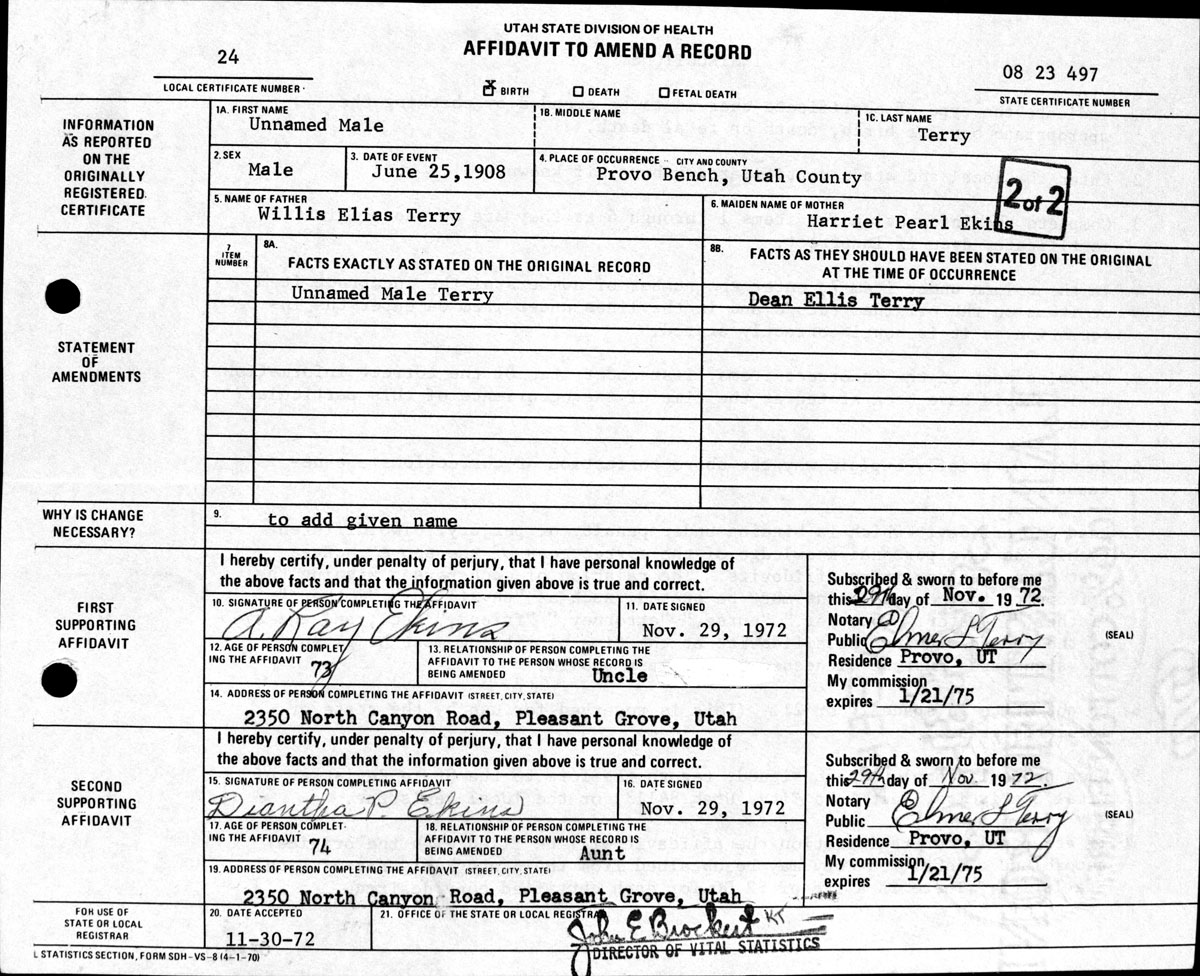 UTAH STATE DIVISION OF HEALTH
AFFIDAVIT TO AMEND A RECORD
24
LOCAL CERTIFICATE NUMBER
X BIRTH DEATH FETAL DEATH
08 23 497
STATE CERTIFICATE NUMBER
INFORMATION AS REPORTED ON THE ORIGINALLY REGISTERED CERTIFICATE
1A. FIRST NAME
Unnamed Male
1B. MIDDLE NAME
1C. LAST NAME
Terry
2. SEX
Male
3. DATE OF EVENT
June 25,1908
4. PLACE OF OCCURRENCE - CITY AND COUNTY
Provo Bench, Utah County
5. NAME OF FATHER
Willis Elias Terry
6. MAIDEN NAME OF MOTHER
Harriet Pearl Ekins
2 of 2
STATEMENT OF AMENDMENTS
7 ITEM NUMBER
8A.
FACTS EXACTLY AS STATED ON THE ORIGINAL RECORD
8B. FACTS AS THEY SHOULD HAVE BEEN STATED ON THE ORIGINAL
AT THE TIME OF OCCURRENCE
Unnamed Male Terry
Dean Ellis Terry
WHY IS CHANGE NECESSARY?
9. to add given name
FIRST SUPPORTING AFFIDAVIT
I hereby certify, under penalty of perjury, that I have personal knowledge of
the above facts and that the information given above is true and correct.
10. SIGNATURE OF PERSON COMPLETING THE AFFIDAVIT
A. Ray Ekins
11. DATE SIGNED
Nov. 29, 1972
12. AGE OF PERSON COMPLET-
ING THE AFFIDAVIT 73
13. RELATIONSHIP OF PERSON COMPLETING THE
AFFIDAVIT TO THE PERSON WHOSE RECORD IS
BEING AMENDED Uncle
14. ADDRESS OF PERSON COMPLETING THE AFFIDAVIT (STREET, CITY, STATE)
2350 North Canyon Road, Pleasant Grove, Utah
Subscribed & sworn to before me
this 29th day of Nov. 1972.
Notary
Public Elmer L Terry
(SEAL)
Residence Provo, UT
My commission
expires 1/21/75
SECOND SUPPORTING AFFIDAVIT
I hereby certify, under penalty of perjury, that I have personal knowledge of
the above facts and that the information given above is true and correct.
15. SIGNATURE OF PERSON COMPLETING AFFIDAVIT
Diantha P. Ekins
16. DATE SIGNED
Nov. 29, 1972
17. AGE OF PERSON COMPLET-
ING THE AFFIDAVIT 74
18. RELATIONSHIP OF PERSON COMPLETING THE
AFFIDAVIT TO THE PERSON WHOSE RECORD IS
BEING AMENDED Aunt
19. ADDRESS OF PERSON COMPLETING THE AFFIDAVIT (STREET, CITY, STATE)
2350 North Canyon Road, Pleasant Grove, Utah
Subscribed & sworn to before me
this 29th day of Nov. 1972
Notary
Public Elmer L Terry
(SEAL)
Residence Provo, UT
My commission
expires 1/21/75
FOR USE OF STATE OR LOCAL REGISTRAR
20. DATE ACCEPTED
11-30-72
21. OFFICE OF THE STATE OR LOCAL REGISTRAR
John E Brockert KT
DIRECTOR OF VITAL STATISTICS
L STATISTICS SECTION, FORM SDH-VS-8 (4-1-70)